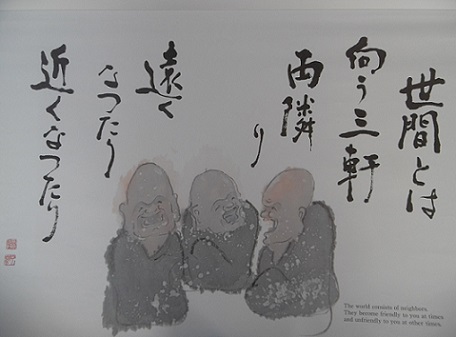 世間とは
向う三軒
両隣り
遠く
なつたり
近くなつたり
The world consists of neighbors.
They become friendly to you at times
and unfriendly to you at other times.